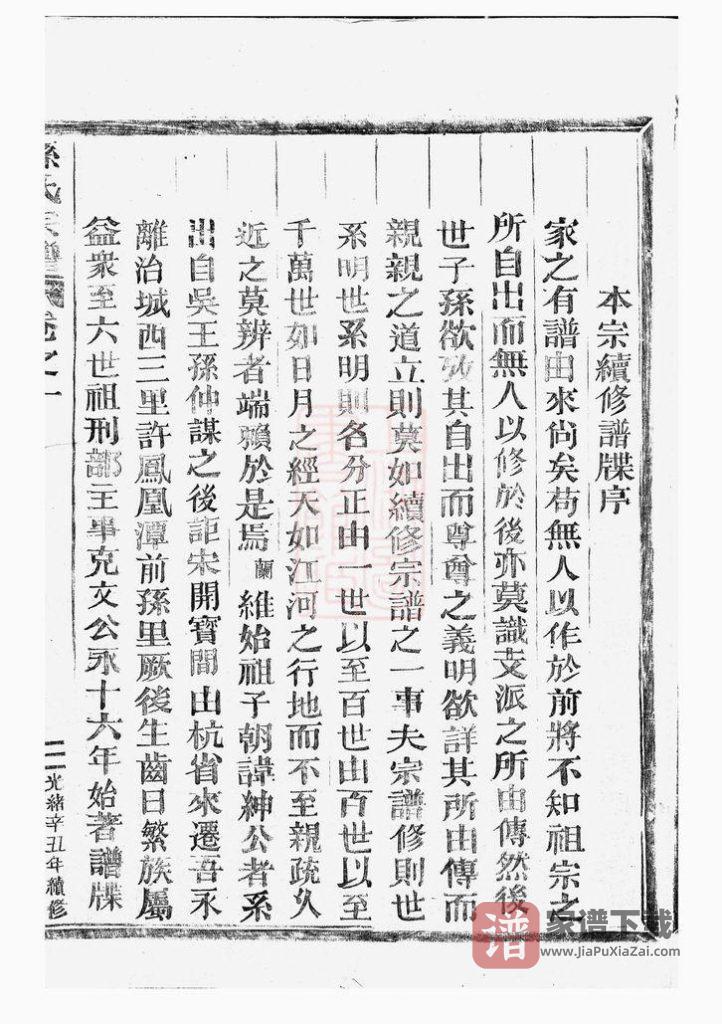 本宗續修譜牒序
家之有譜由來尚矣苟無人以作於前將不知祖宗之
所自出而無人以修於後亦莫識支派之所由傳然後
世子孫欲效其自出而尊尊之義明欲詳其所由傳而
親親之道立則莫如續修宗譜之一事夫宗譜修則世
系明世系明則名分正由一世以至百世由百世以至
千萬世如日月之經天如江河之行地而不至親疏久
近之莫辨者端賴於是焉蘭維始祖子朝諱紳公者系
出自吳王孫仲謀之後詎宋開寶間由杭省來遷吾永
離治城西三里許鳳凰潭前孫里厥後生齒日繁族屬
益衆至六世祖刑部主事克文公永十六年始著譜牒
孫氏宗譜 卷之一
二 光緒辛丑年續修
譜 家谱下载
www.JiaPuXiaZai.com